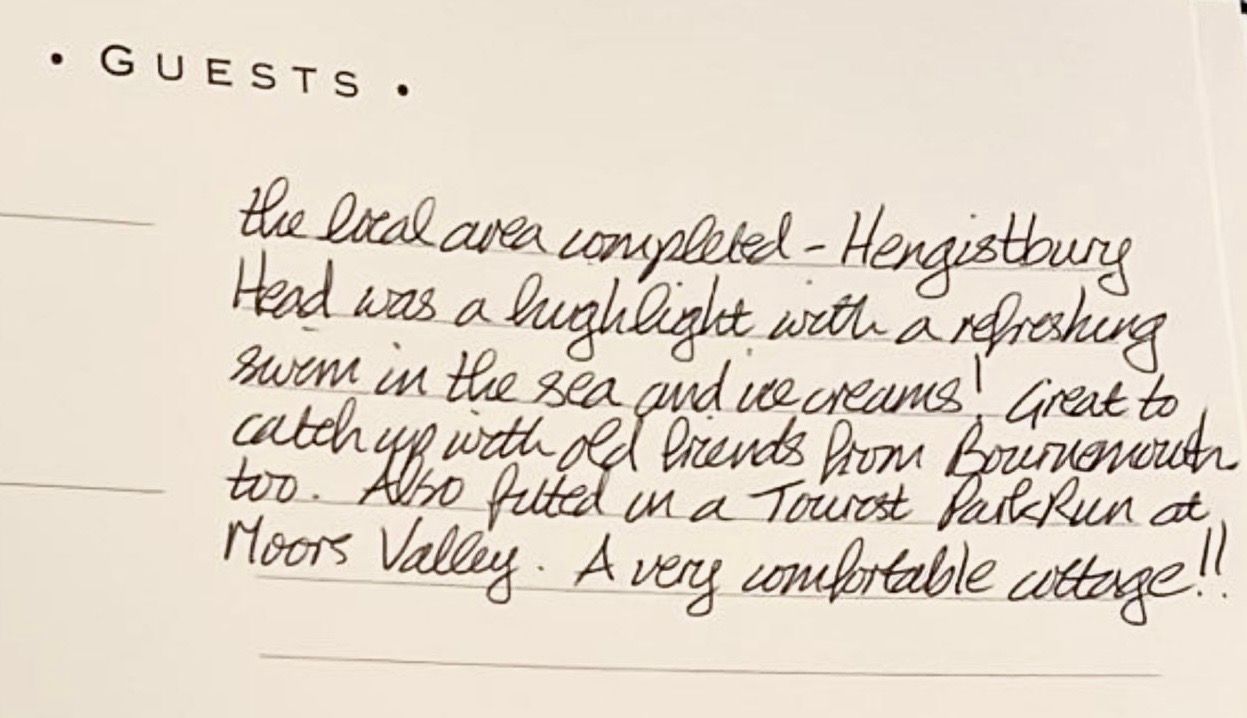 • GUESTS •
the local area completed - Hengistbury
Head was a highlight with a refreshing
swim in the sea and ice creams! Great to
catch up with old friends from Bournemouth
too. Also fitted in a Tourist ParkRun at
Moors Valley. A very comfortable cottage!!